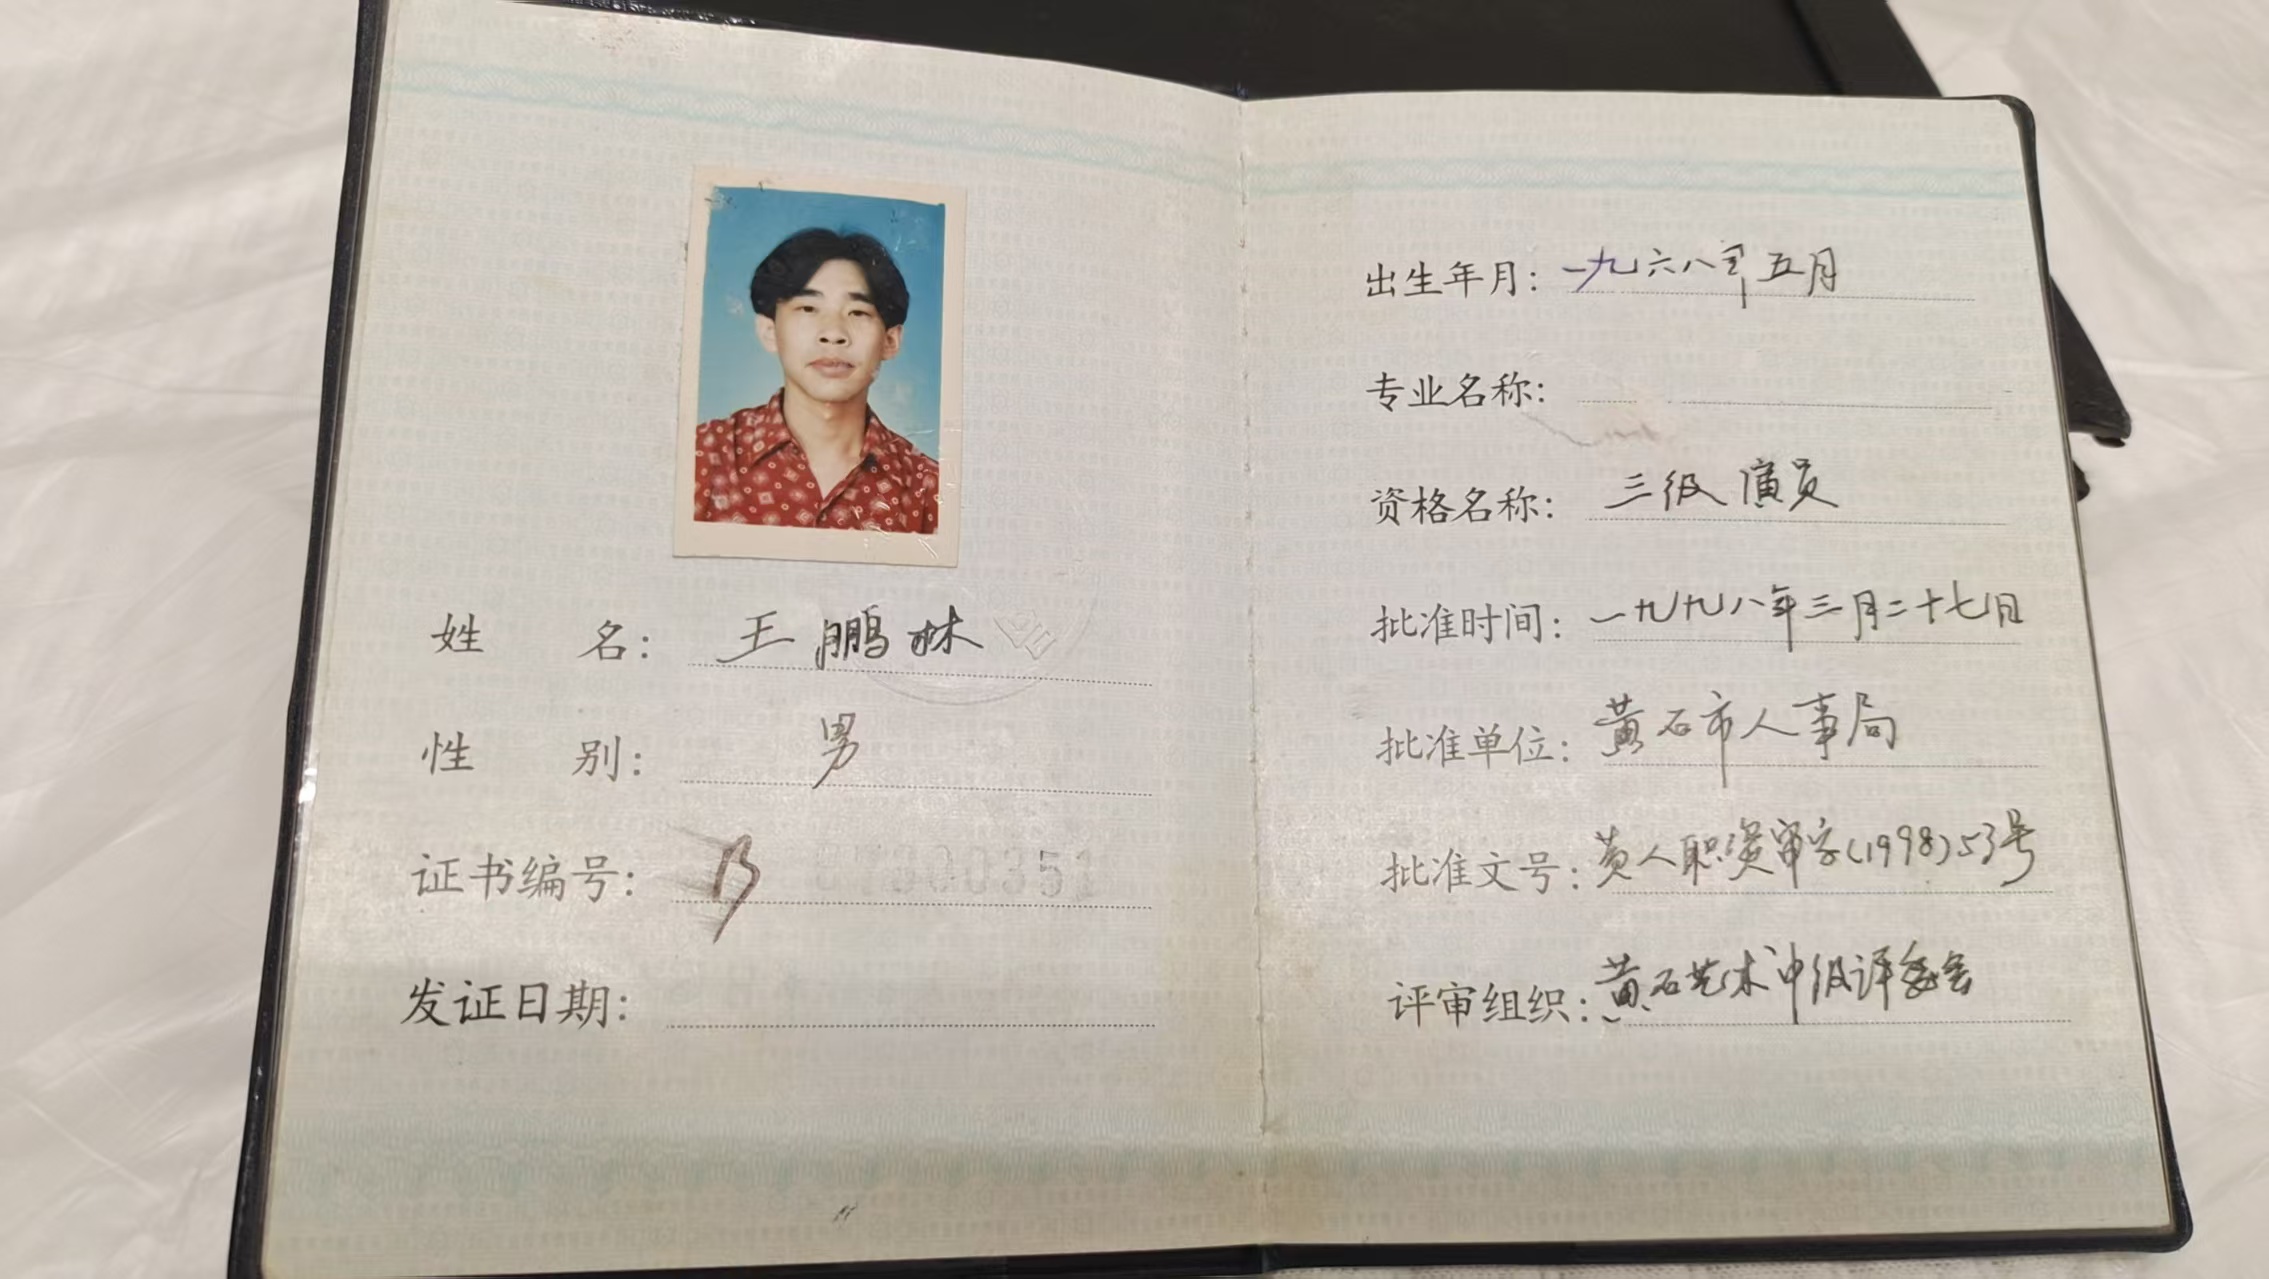 姓 名: 王鹏林
性 别: 男
证书编号: B
发证日期:
出生年月: 一九六八年五月
专业名称:
资格名称: 三级演员
批准时间: 一九九八年三月二十七日
批准单位: 黄石市人事局
批准文号: 黄人职资审字(1998)53号
评审组织: 黄石艺术中级评委会